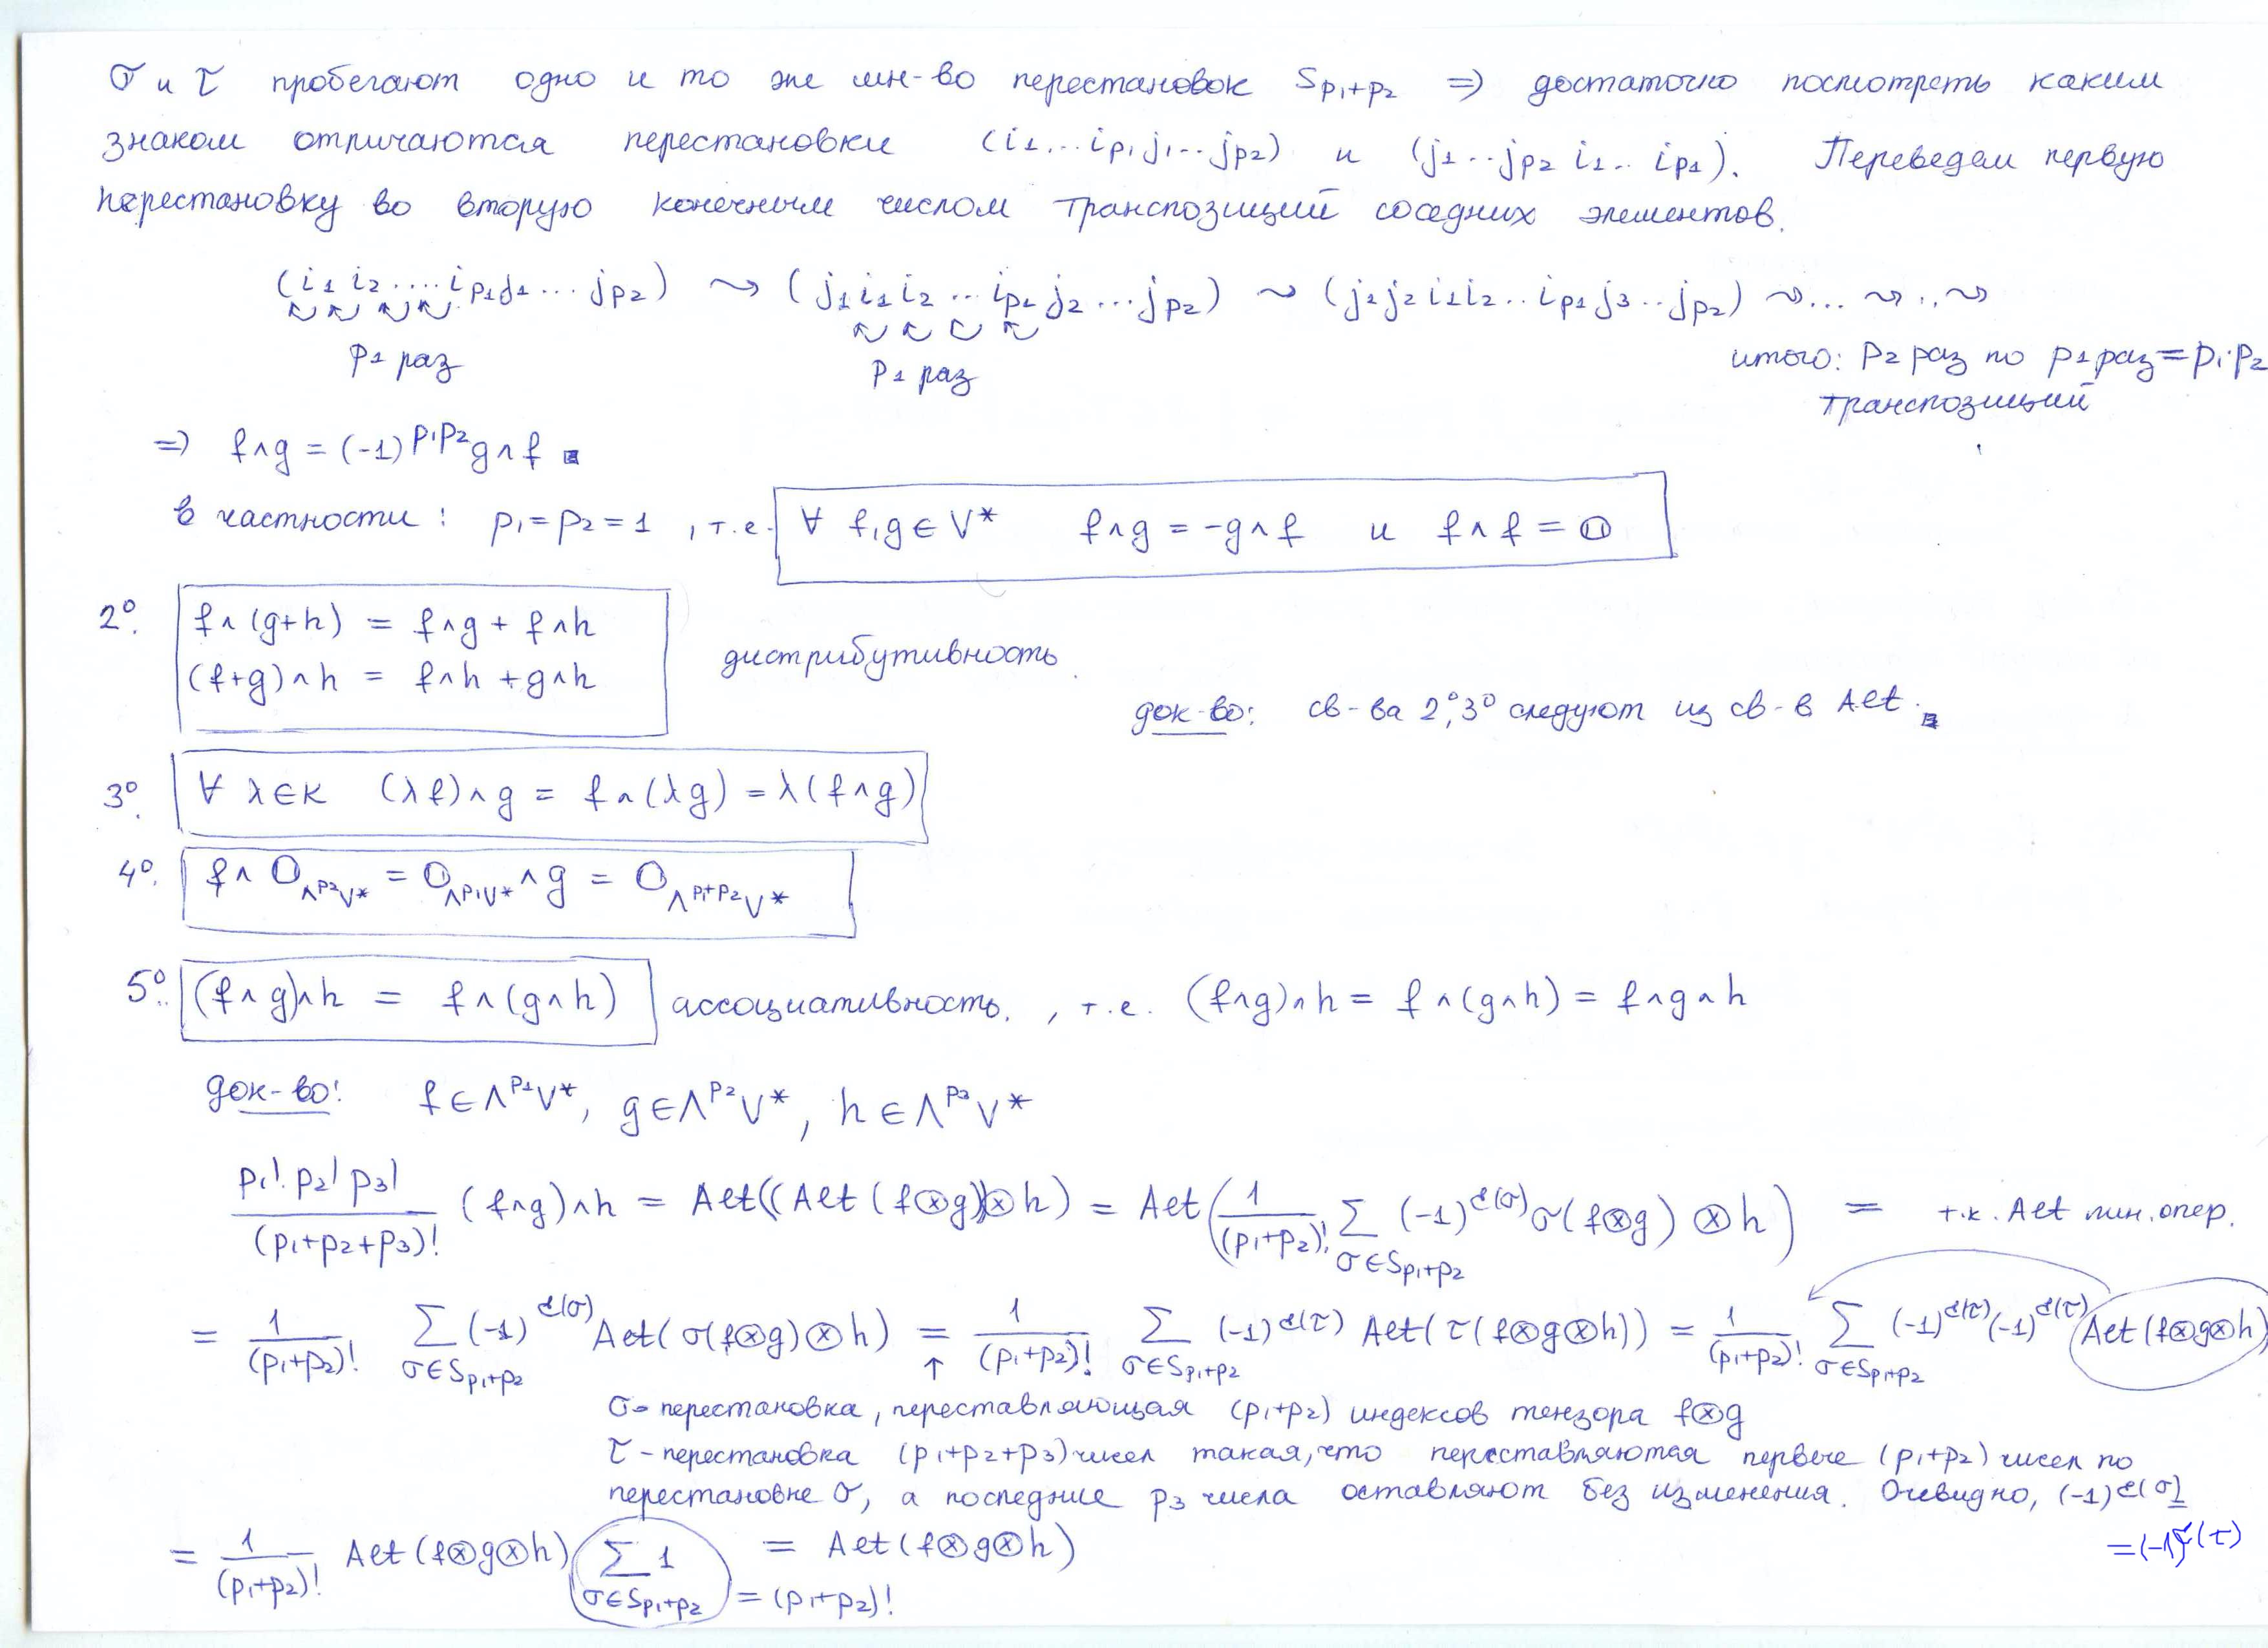 σ и τ пробегают одно и то же мн-во перестановок S_{p₁+p₂} ⇒ достаточно посмотреть каким
знаком отличаются перестановки (i₁...i_{p₁}j₁...j_{p₂}) и (j₁...j_{p₂} i₁...i_{p₁}). Переведем первую
перестановку во вторую конечным числом транспозиций соседних элементов.
(i₁ i₂ .... i_{p₁}j₁...j_{p₂}) ⤳ (j₁i₁i₂...i_{p₁}j₂...j_{p₂}) ⤳ (j₁j₂i₁i₂..i_{p₁}j₃..j_{p₂}) ⤳... ⤳ ..⤳
p₁ раз p₁ раз итого: p₂ раз по p₁ раз = p₁·p₂
транспозиций
⇒ f∧g = (-1)^{p₁p₂} g∧f ▪
в частности: p₁=p₂=1, т.е. ∀ f,g∈V* f∧g = -g∧f и f∧f = 𝟘
2°. f∧(g+h) = f∧g + f∧h
(f+g)∧h = f∧h + g∧h
дистрибутивность.
док-во: св-ва 2°,3° следуют из св-в Alt. ▪
3°. ∀ λ∈K (λf)∧g = f∧(λg) = λ(f∧g)
4°. f∧𝟘_{∧^{p₂}V*} = 𝟘_{∧^{p₁}V*}∧g = 𝟘_{∧^{p₁+p₂}V*}
5°. (f∧g)∧h = f∧(g∧h) ассоциативность., т.е. (f∧g)∧h = f∧(g∧h) = f∧g∧h
док-во: f∈∧^{p₁}V*, g∈∧^{p₂}V*, h∈∧^{p₃}V*
p₁! p₂! p₃!/(p₁+p₂+p₃)! (f∧g)∧h = Alt((Alt(f⊗g)⊗h) = Alt(1/(p₁+p₂)! Σ_{σ∈S_{p₁+p₂}} (-1)^{ε(σ)} σ(f⊗g)⊗h) = т.к. Alt лин.опер.
= 1/(p₁+p₂)! Σ_{σ∈S_{p₁+p₂}} (-1)^{ε(σ)} Alt(σ(f⊗g)⊗h) = 1/(p₁+p₂)! Σ_{σ∈S_{p₁+p₂}} (-1)^{ε(τ)} Alt(τ(f⊗g⊗h)) = 1/(p₁+p₂)! Σ_{σ∈S_{p₁+p₂}} (-1)^{ε(τ)}(-1)^{ε(τ)} Alt(f⊗g⊗h)
↑
σ - перестановка, переставляющая (p₁+p₂) индексов тензора f⊗g
τ - перестановка (p₁+p₂+p₃) чисел такая, что переставляются первые (p₁+p₂) чисел по
перестановке σ, а последние p₃ числа оставляют без изменения. Очевидно, (-1)^{ε(σ)}
=(-1)^{ε(τ)}
= 1/(p₁+p₂)! Alt(f⊗g⊗h) Σ_{σ∈S_{p₁+p₂}} 1 = Alt(f⊗g⊗h)
= (p₁+p₂)!